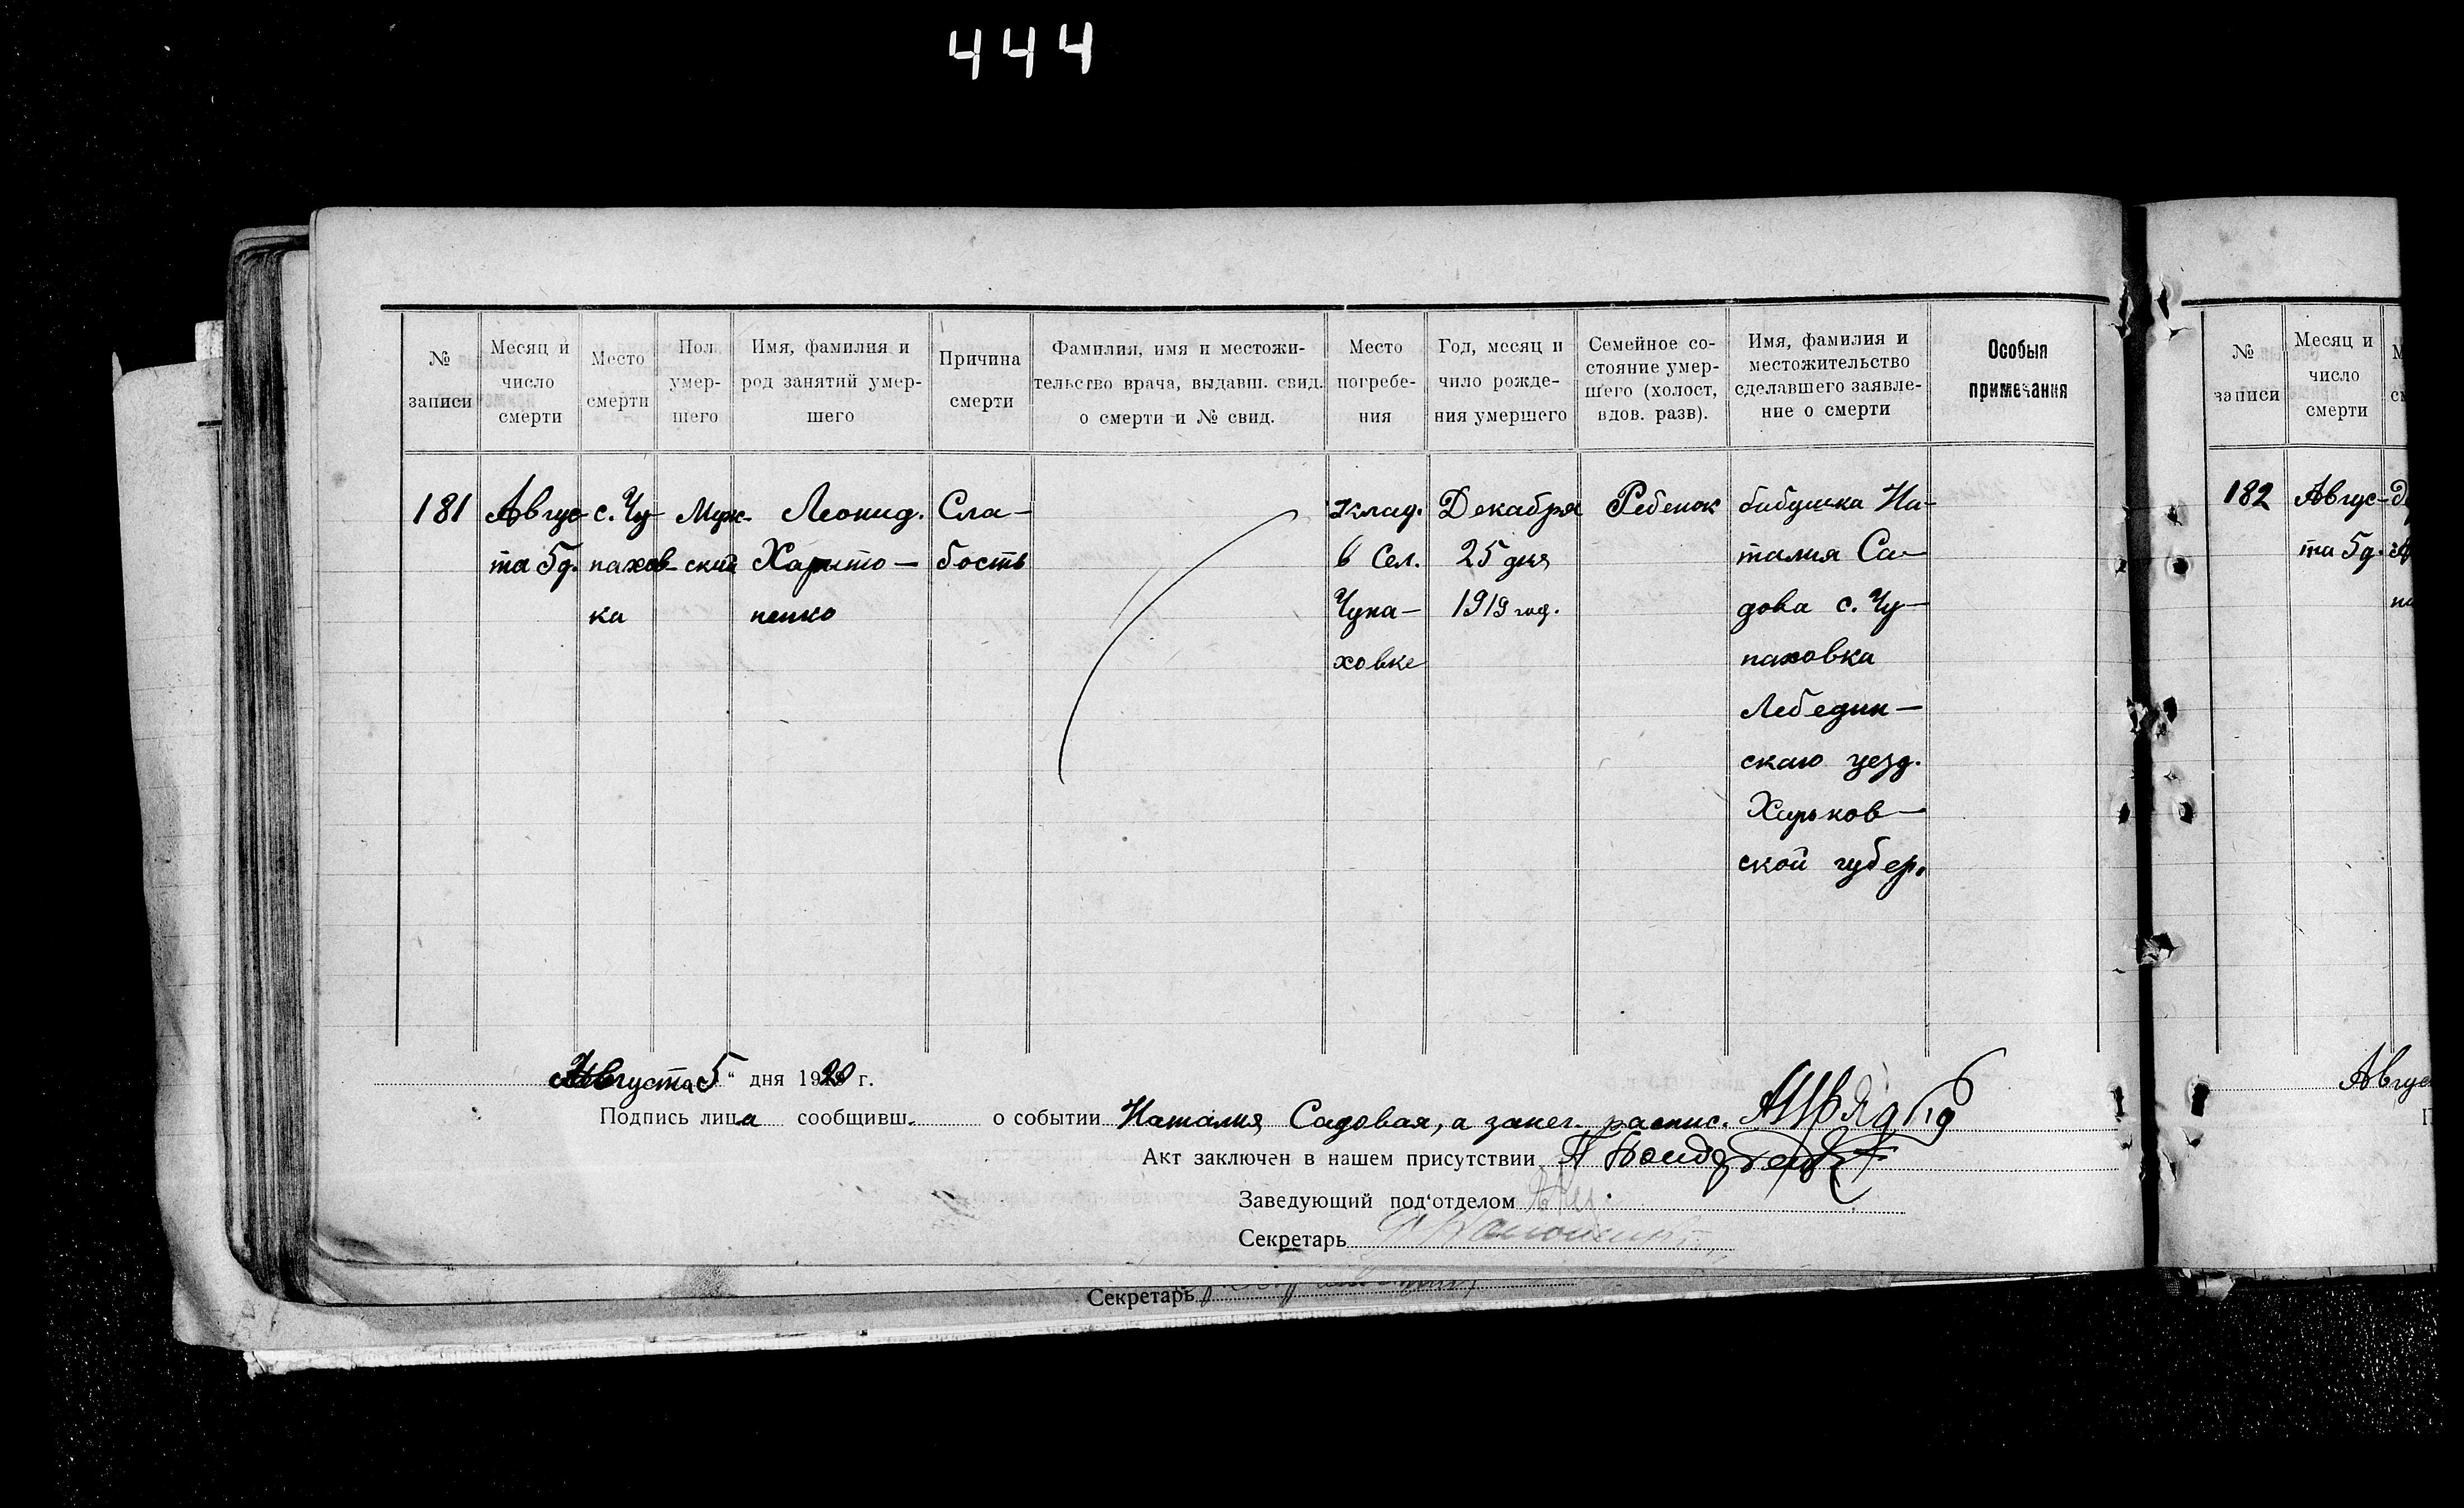 444
№ записи
Месяц и число смерти
Место смерти
Пол умер-шего
Имя, фамилия и род занятий умер-шего
Причина смерти
Фамилия, имя и местожи-тельство врача, выдавш. свид. о смерти и № свид.
Место погребе-ния
Год, месяц и чило рожде-ния умершего
Семейное со-стояние умер-шего (холост, вдов. разв).
Имя, фамилия и местожительство сделавшего заявле-ние о смерти
Особыя примечания
181
Авгус-
та 5д.
с. Чу-
пахов-
ка
Муж-
ский
Леонид.
Харито-
ненко
Сла-
бость
клад.
в Сел.
Чупа-
ховке
Декабря
25 дня
1919 год.
Ребенок
бабушка На-
талия Са-
дова с. Чу-
паховка
Лебедин-
скаго уезд.
Харьков-
ской губер.
Августа 5 " дня 1920 г.
Подпись лица сообщивш. о событии Наталия Садовая, а за нег. распис.
Акт заключен в нашем присутствии
Заведующий под'отделом
Секретарь
Секретарь
№ записи
Месяц и число смерти
182
Авгус-
та 5д.
Авгус